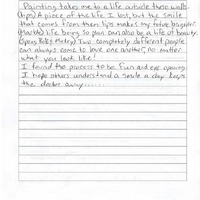 Painting takes me to a life outside these walls.
(Lips) A piece of the life I lost, but the smile
that comes from their lips makes my future brighter.
life being so plain can also be a life of beauty.
Two completely different people
can always come to love one another, no matter
what you look like!
I found the process to be fun and eye opening
I hope others understand a smile a day keeps
the doctor away......